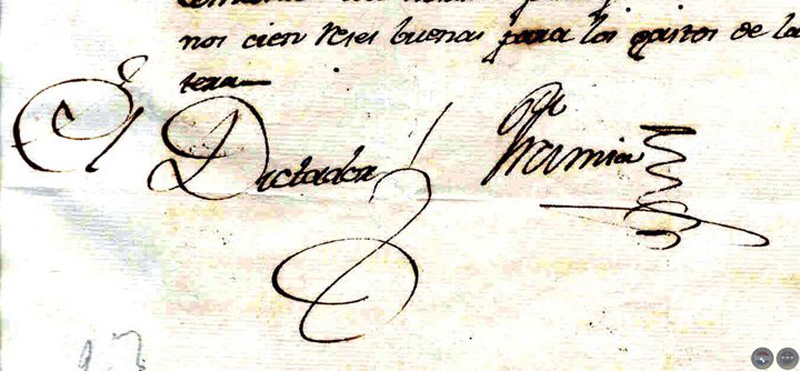 nos cien reses buenas para los gastos de la
tera
El Dictador Francia
23